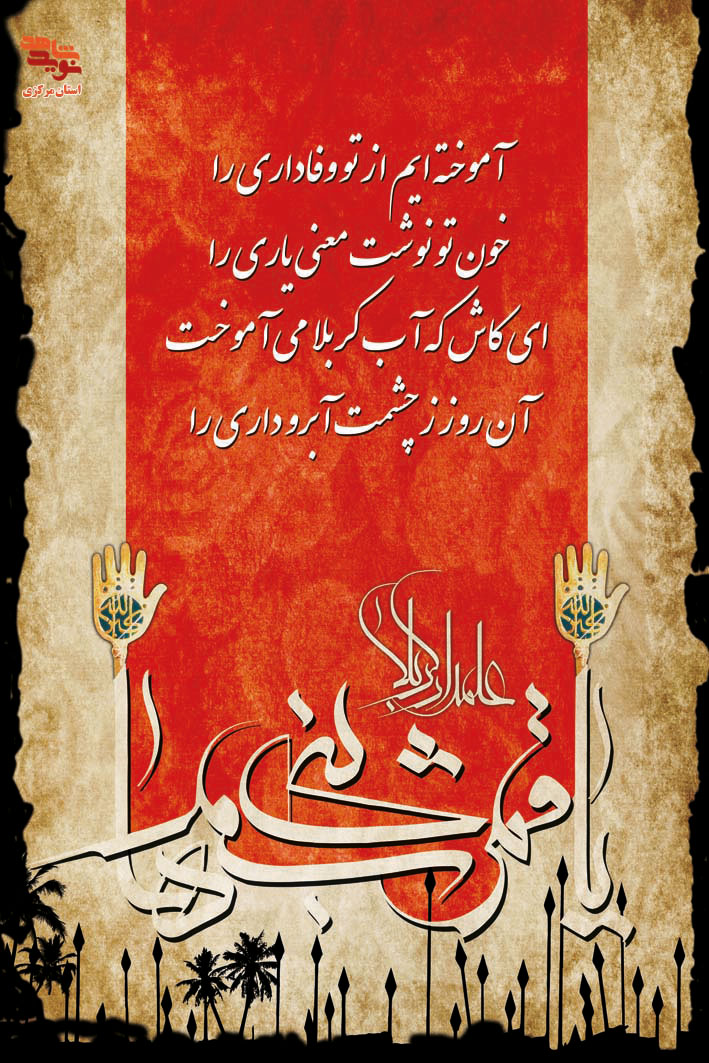 نوید شاهد
استان مرکزی
آموخته ایم از تو وفاداری را
خون تو نوشت معنی یاری را
ای کاش که آب کربلا می آموخت
آن روز ز چشمت آبروداری را
علمدار کربلا
یا قمر بنی هاشم